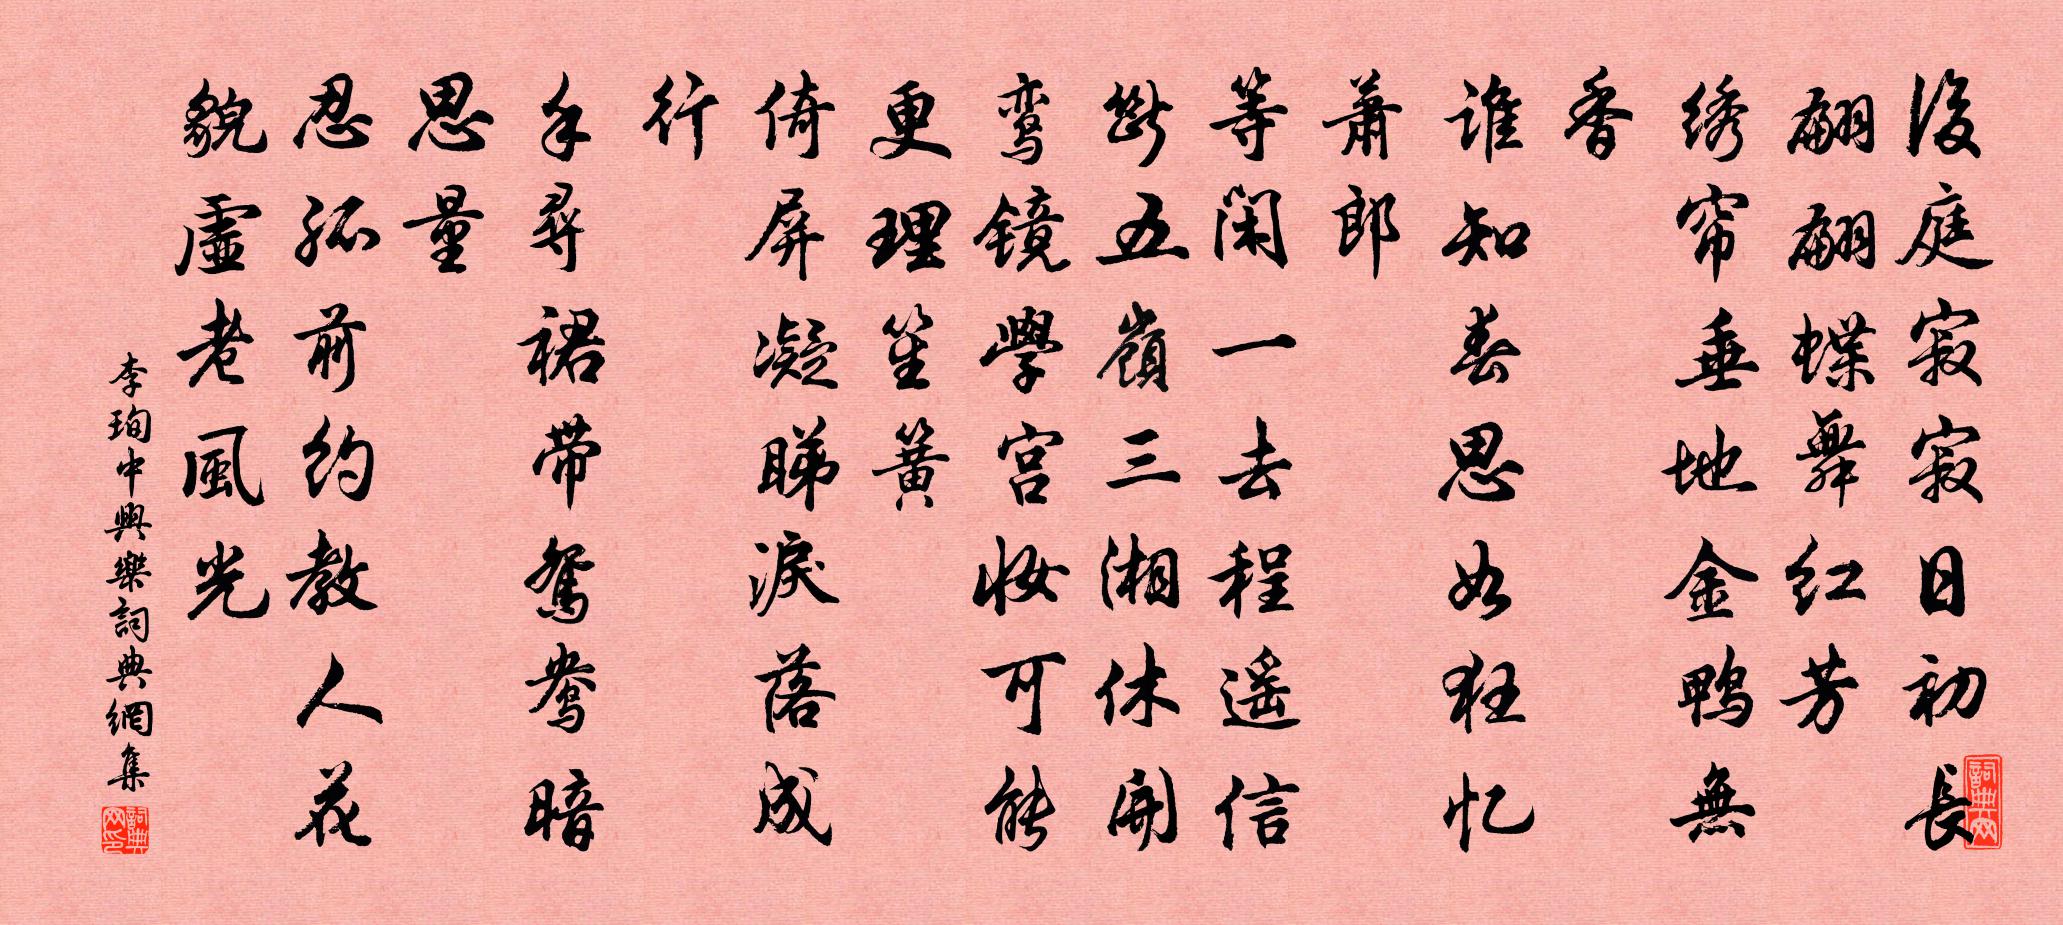 後庭寂寂日初長
翩翩蝶舞红芳
绣帘垂地金鸭無
香
谁知春思如狂忆
萧郎
等闲一去程遥信
断五嶺三湘休開
鸾镜學宫妆可能
更理笙簧
倚屏凝睇淚落成
行
手尋裙带鸳鸯暗
思量
忍孤前约教人花
貌虚老風光
李珣中興樂詞典網集
詞典网
詞典网印